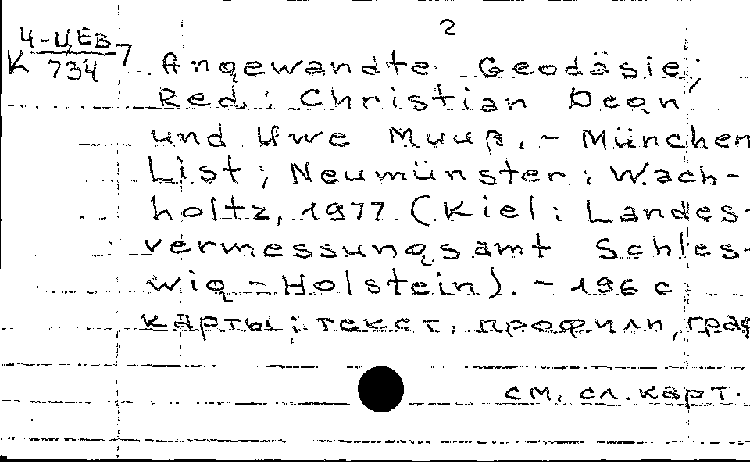 2
4-ЦЕВ 7
К 734
Angewandte Geodäsie;
Red.: Christian Degn
und Uwe Muuß. - München
List; Neumünster: Wach-
holtz, 1977 (Kiel: Landes-
vermessungsamt Schles-
wig-Holstein). - 196 с
карты; текст, профили, граф
см. сл. карт.